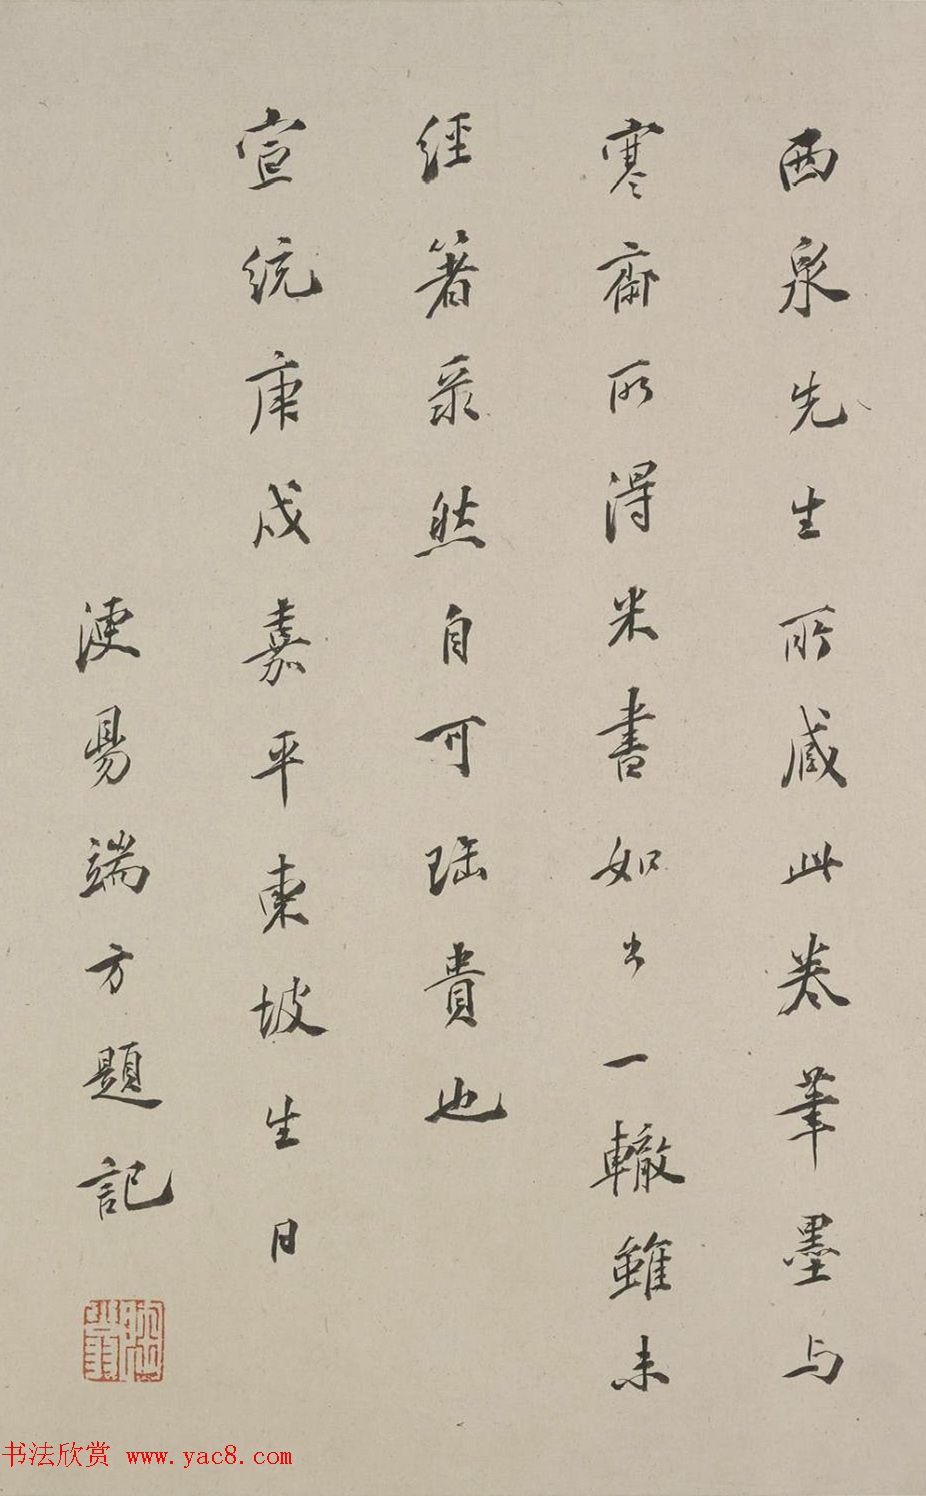 西泉先生所藏此卷筆墨与
寒齋所得米書如出一轍雖未
經著录然自可珤貴也
宣統庚戌嘉平東坡生日
浭易端方題記
书法欣赏 www.yac8.com